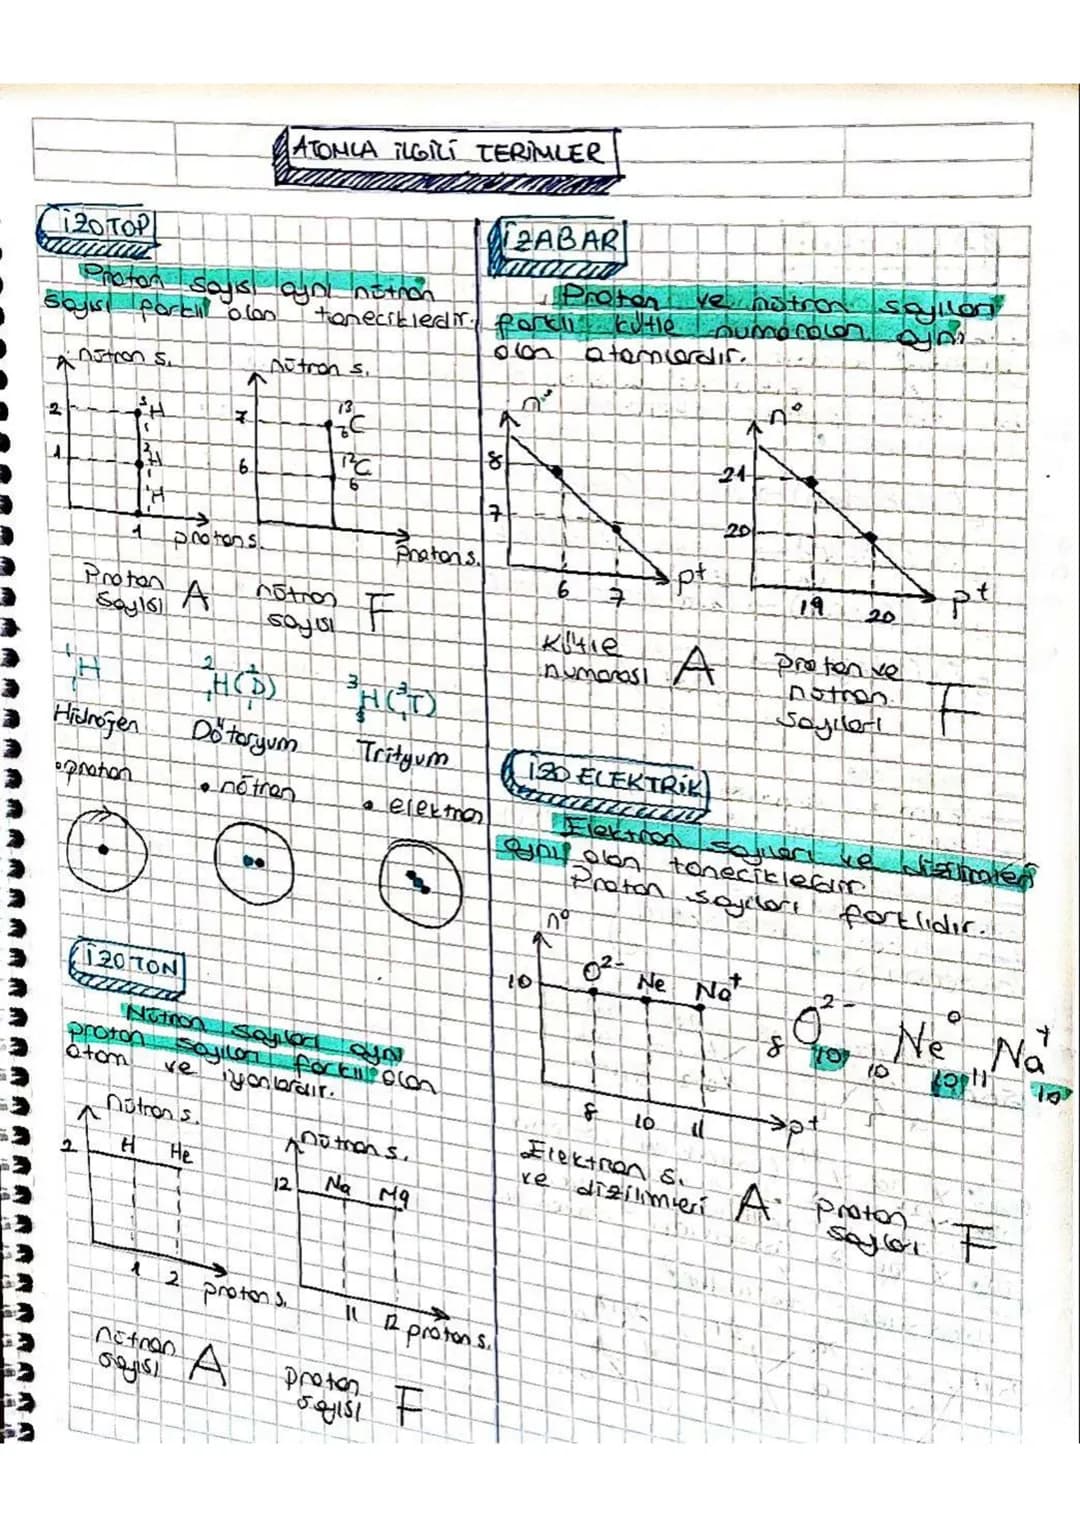 ATOMLA İLGİLİ TERİMLER
İZOTOP
Proton sayısı aynı nötron
sayısı farklı olan taneciklerdir.
nötron s.
2
1
³₁H
²₁H
¹₁H
1
proton s.
nötron s.
7
6
¹³₆C
¹²₆C
Proton s.
Proton
sayısı A
nötron
sayısı F
¹₁H
²₁H(²₁D)
³₁H(³₁T)
Hidrojen
Dötoryum
Trityum
• proton
• nötron
• elektron
İZOTON
Nötron sayıları aynı
proton sayıları farklı olan
atom ve iyonlardır.
nötron s.
2
H
He
1
2
proton s.
nötron s.
12
Na
Mg
11
12 proton s.
nötron
sayısı A
proton
sayısı F
İZABAR
Proton ve nötron sayıları
farklı kütle numaraları aynı
olan atomlardır.
n°
8
7
6
7
p⁺
n°
21
20
19
20
p⁺
Kütle
numarası A
proton ve
nötron
sayıları F
İZO ELEKTRİK
Elektron sayıları ve dizilimleri
aynı olan taneciklerdir
Proton sayıları farklıdır.
n°
10
O²⁻
Ne
Na⁺
8
10
11
p⁺
₈O²⁻ 10
₁₀Ne⁰ 10
₁₁Na⁺ 10
Elektron s.
ve dizilimleri A
proton
sayıları F